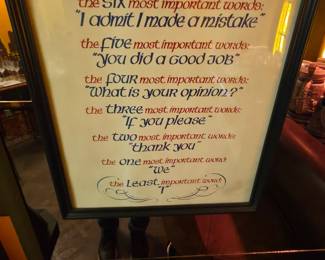 the SIX most important words:
"I admit I made a mistake"
the five most important words:
"you did a good job"
the four most important words:
"What is your opinion?"
the three most important words:
"If you please"
the two most important words:
"thank you"
the one most important word:
"We"
the Least important word:
"I"